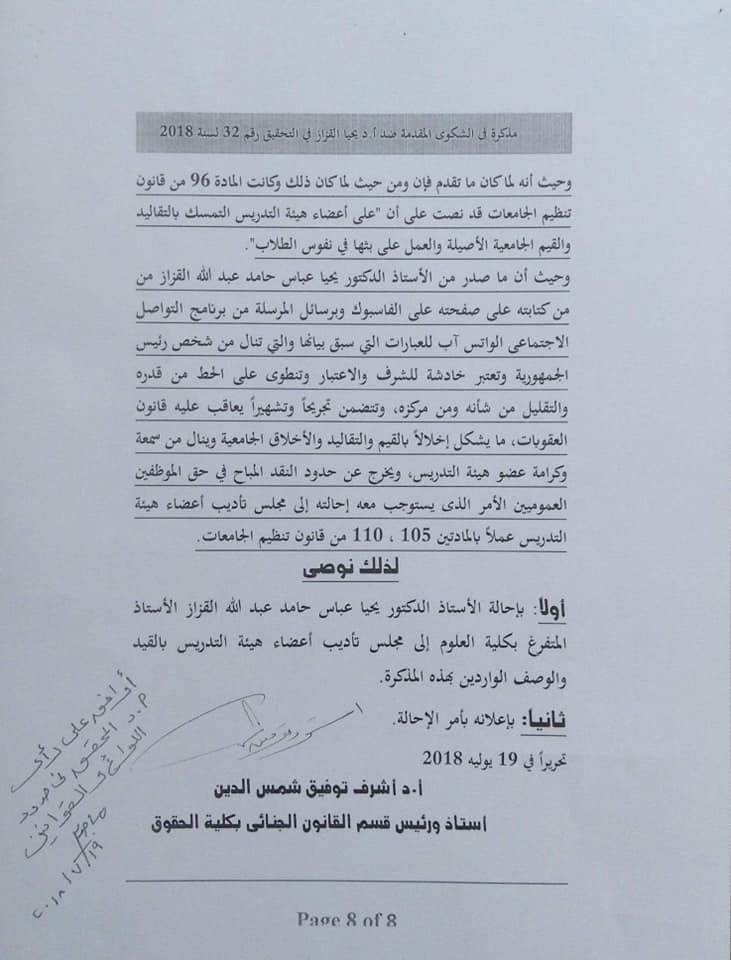 مذكرة فى الشكوى المقدمة ضد أ.د يحيا القزاز في التحقيق رقم 32 لسنة 2018
وحيث أنه لما كان ما تقدم فإن ومن حيث لما كان ذلك وكانت المادة 96 من قانون
تنظيم الجامعات قد نصت على أن "على أعضاء هيئة التدريس التمسك بالتقاليد
والقيم الجامعية الأصيلة والعمل على بثها في نفوس الطلاب".
وحيث أن ما صدر من الأستاذ الدكتور يحيا عباس حامد عبد الله القزاز من
من كتابته على صفحته على الفاسبوك وبرسائل المرسلة من برنامج التواصل
الاجتماعى الواتس آب للعبارات التي سبق بيانها والتي تنال من شخص رئيس
الجمهورية وتعتبر خادشة للشرف والاعتبار وتنطوى على الحط من قدره
والتقليل من شأنه ومن مركزه، وتتضمن تجريحاً وتشهيراً يعاقب عليه قانون
العقوبات، ما يشكل إخلالاً بالقيم والتقاليد والأخلاق الجامعية وينال من سمعة
وكرامة عضو هيئة التدريس، ويخرج عن حدود النقد المباح في حق الموظفين
العموميين الأمر الذى يستوجب معه إحالته إلى مجلس تأديب أعضاء هيئة
التدريس عملاً بالمادتين 105 ، 110 من قانون تنظيم الجامعات.
لذلك نوصى
أولاً: بإحالة الأستاذ الدكتور يحيا عباس حامد عبد الله القزاز الأستاذ
المتفرغ بكلية العلوم إلى مجلس تأديب أعضاء هيئة التدريس بالقيد
والوصف الواردين بهذه المذكرة.
ثانيا: بإعلانه بأمر الإحالة.
تحريراً في 19 يوليه 2018
أ.د أشرف توفيق شمس الدين
أستاذ ورئيس قسم القانون الجنائى بكلية الحقوق
أوافق على رأى
أ.د المحقق فى حدود
اللوائح والقوانين
٢٠١٨/٧/١٩
Page 8 of 8